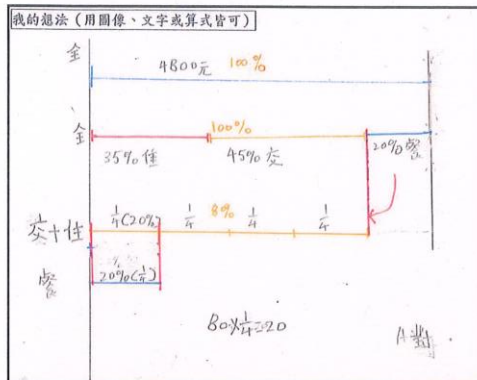 我的想法（用圖像、文字或算式皆可）
全 4800元 100%
全 100%
35% 住 45% 交 20% 餐
交+住 1/4(20%) 1/4 8% 1/4 1/4
餐 20%(1/4)
80×1/4=20
A對